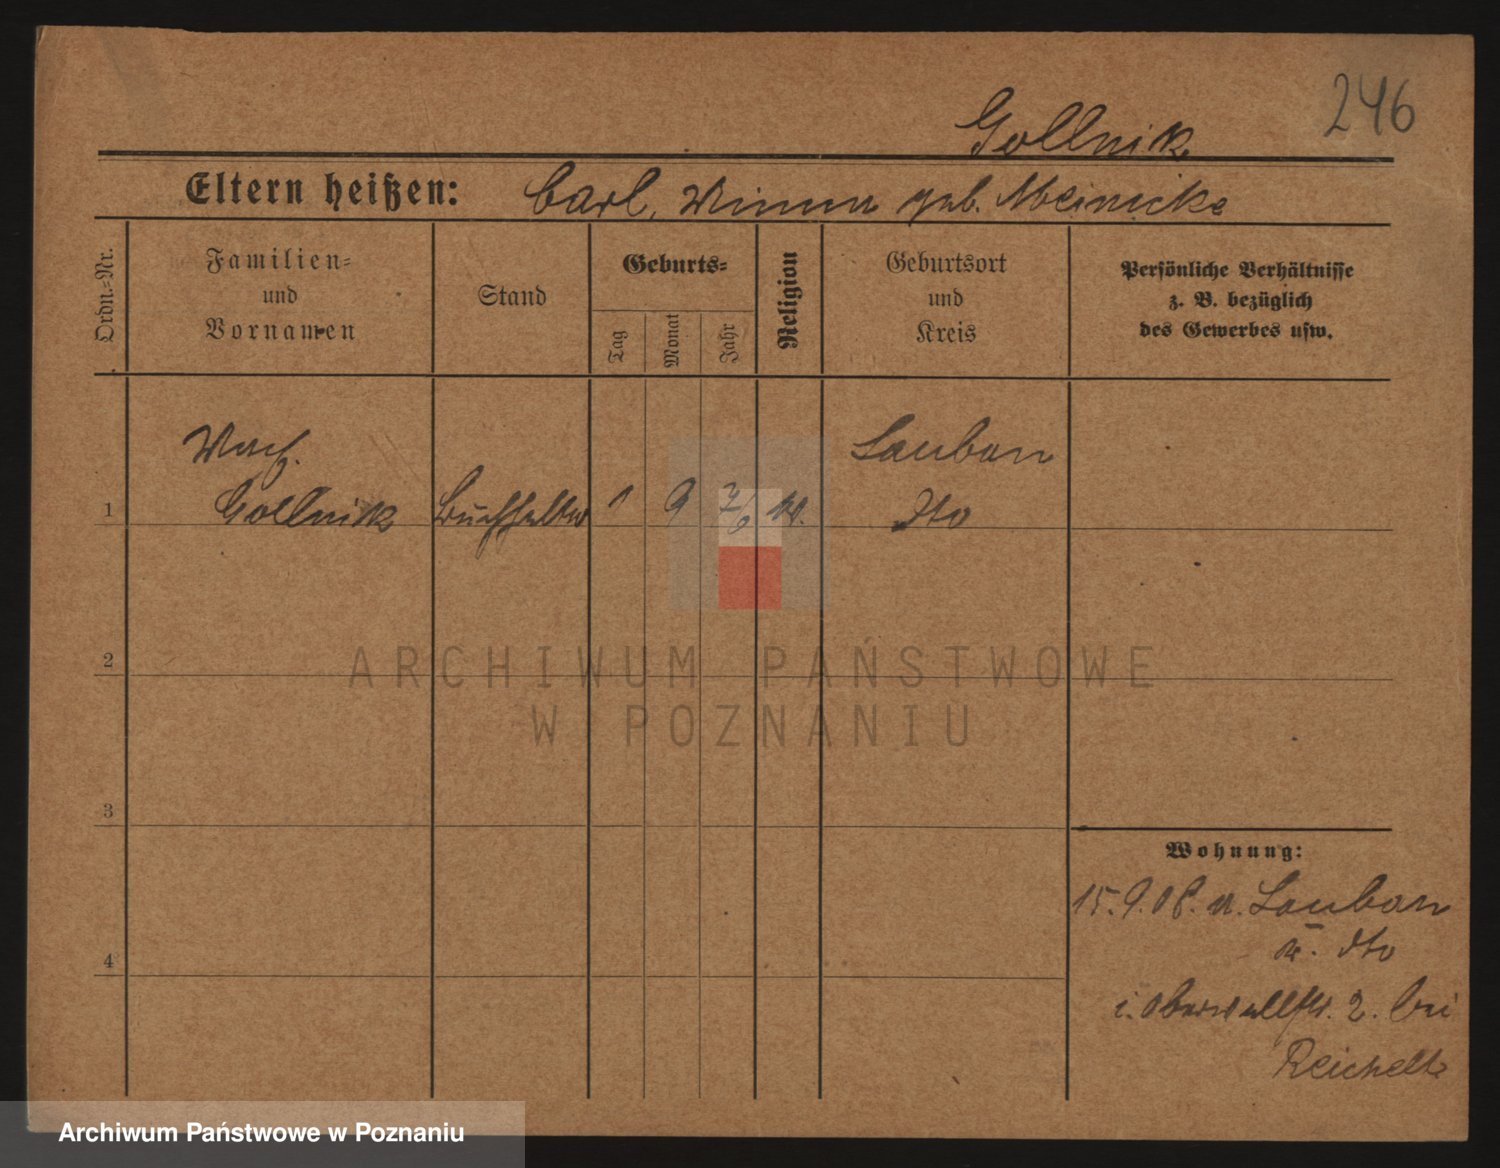 246
Gollnik
Eltern heißen: Carl, Minna geb. Meinicke
Ordn.=Nr.
Familien=
und
Vornamen
Stand
Geburts=
Tag
Monat
Jahr
Religion
Geburtsort
und
Kreis
Persönliche Verhältnisse
z. B. bezüglich
des Gewerbes usw.
Lauban
1 Gollnik Buchhalter 1 9 dto
2
ARCHIWUM PAŃSTWOWE
W POZNANIU
3
4
Wohnung:
15.9.08. a. Lauban
K. dto
i. Oberwallstr. 2. bei
Reichelt
Archiwum Państwowe w Poznaniu